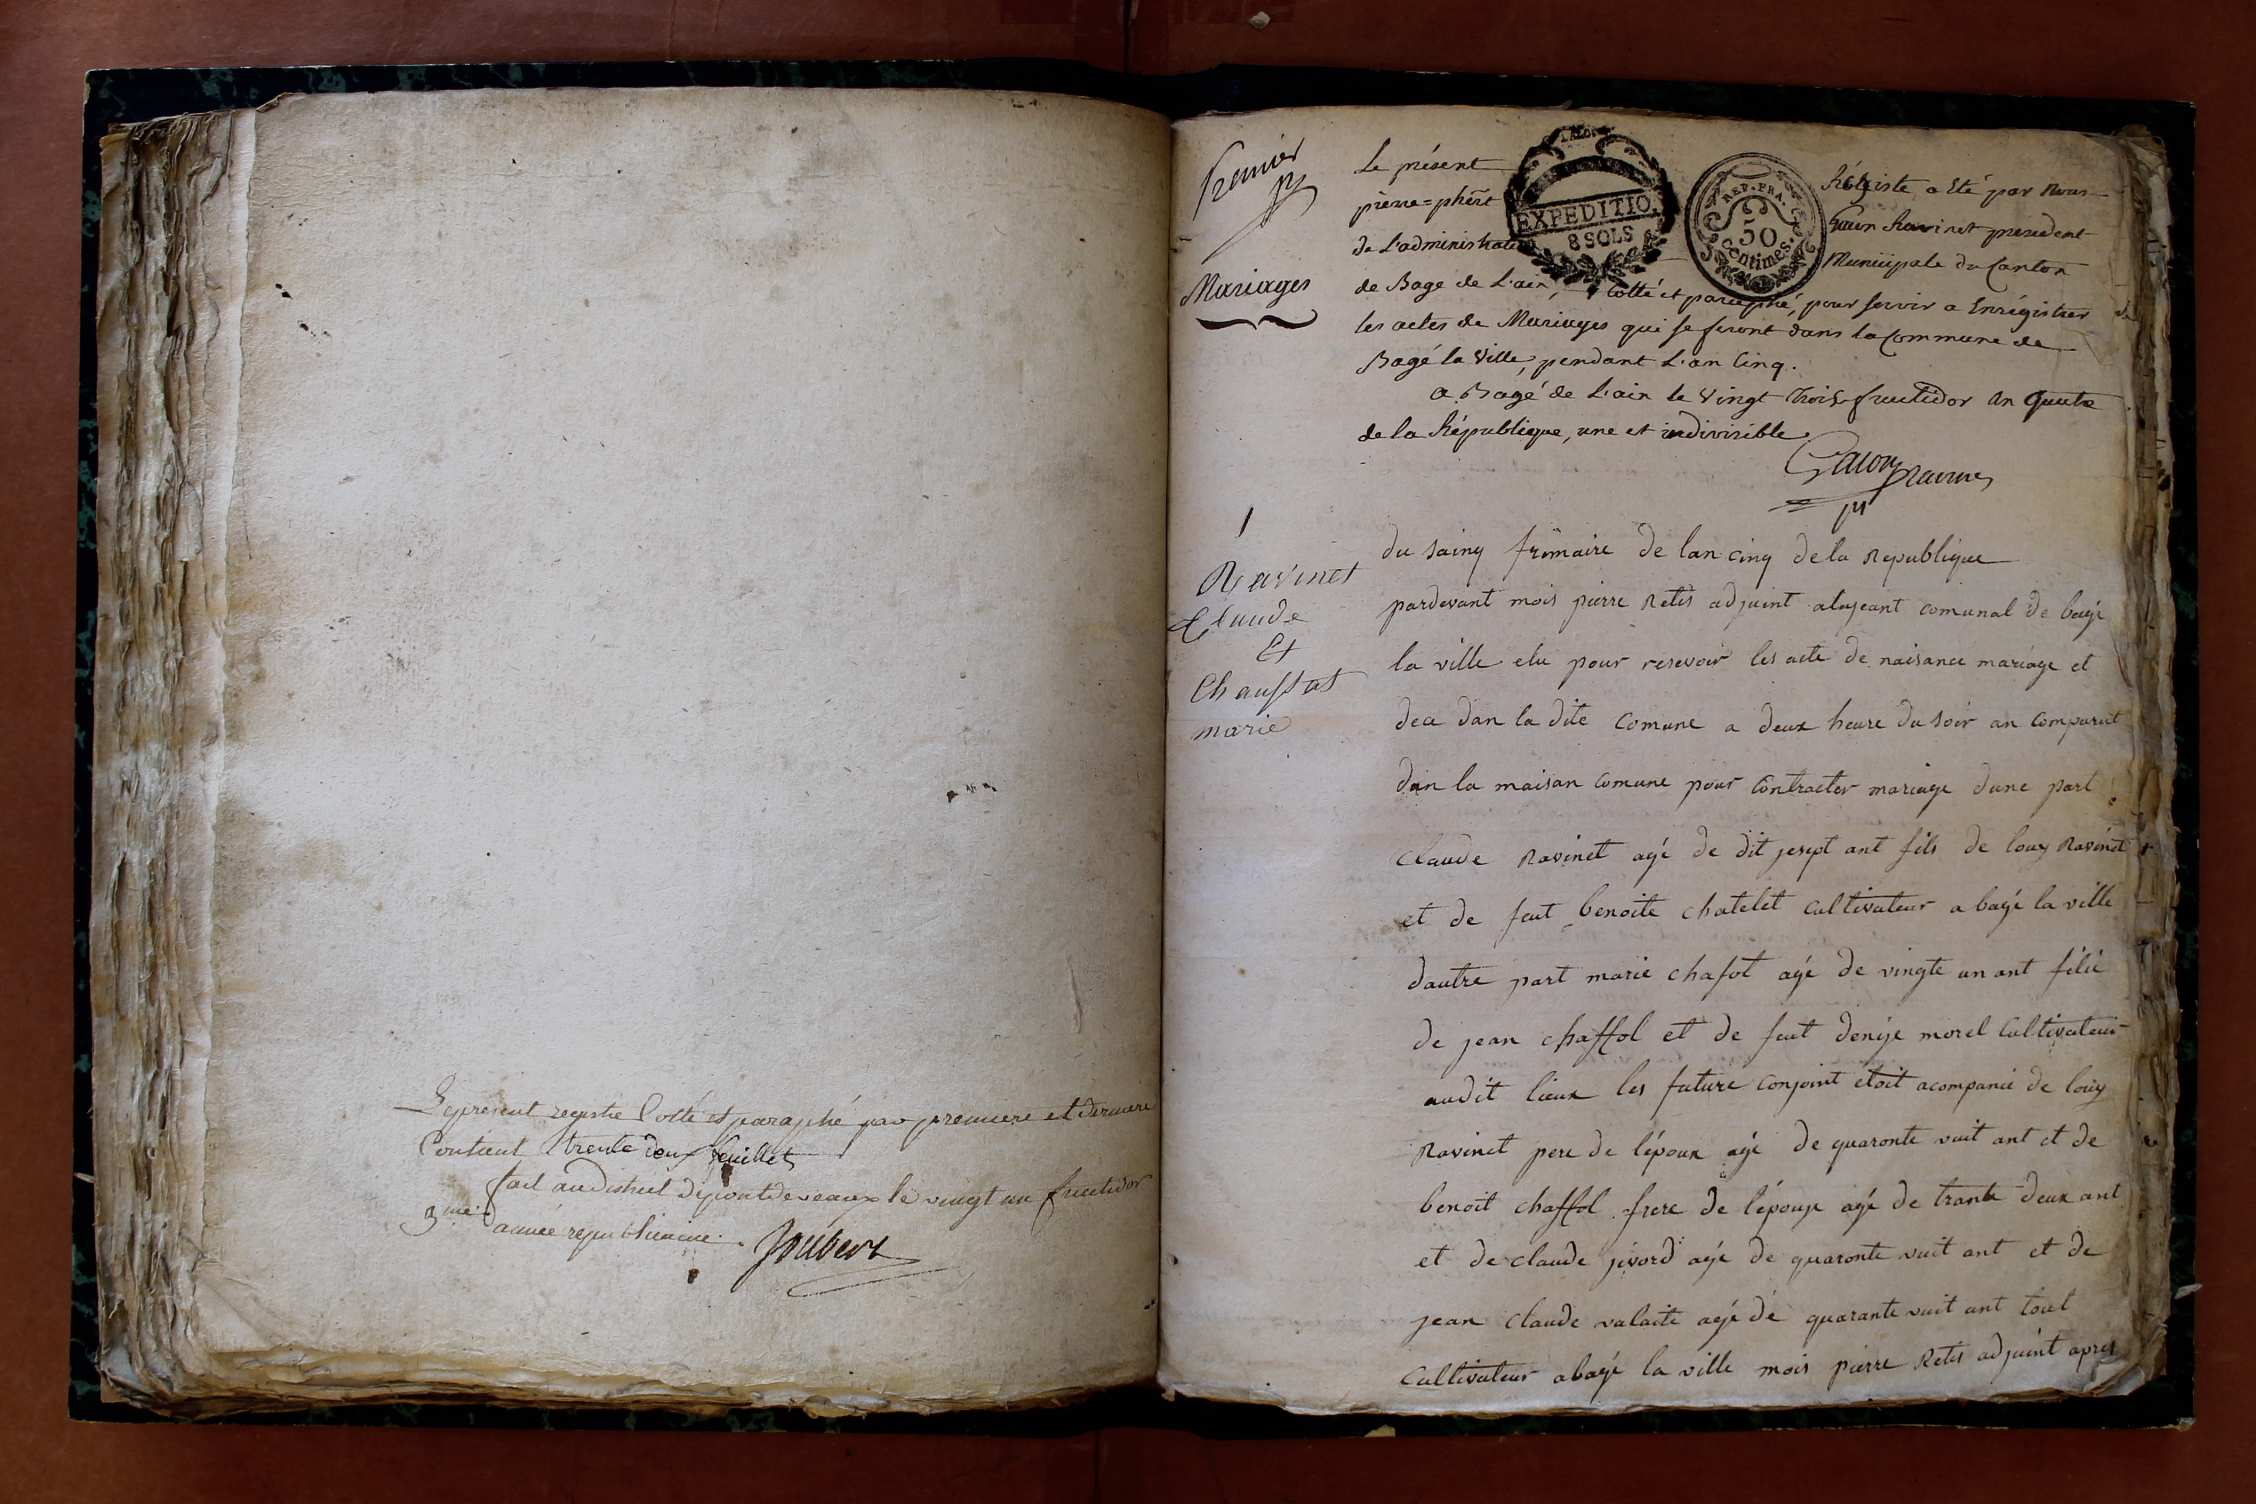 Le present registre Cotté et paraphé par premiere et derniere
Contient trente deux feuillets
fait au district de pont de veaux le vingt un fructidor
3me année republicaine. Joubert
premier
Mariages
Le présent Régiste a Eté par Nous
pierre=phert Ravinet president
de L'administration Municipale du Canton
EXPEDITIO.
8 SOLS
REP. FRA.
50
centimes.
de Bage de L'ain, Cotté et paraphé, pour servir a Enrégistrer
les actes de Mariages qui se feront dans la Commune de
Bagé la Ville, pendant L'an Cinq.
a Bagé de L'ain le Vingt Trois fructidor an Quatre
de la République, une et indivisible.
1
Ravinet
Claude
Et
Chaussat
marie
du sainq frimaire de lan cinq de la Republique
pardevant mois pierre Retis adjuint alajeant comunal de bagé
la ville elu pour resevoir les acte de naisance mariage et
dea dan la dite comune a deux heure du soir an comparut
dan la maison comune pour contracter mariage dune part
claude Ravinet agé de dit jesept ant fils de louy Ravinet
et de feut benoite chatelet cultivateur a bagé la ville
dautre part marie chafot agé de vingte un ant filie
de jean chaffol et de feut denije morel cultivateur
audit lieux les future conjoint étoit acompanié de louy
Ravinet pere de l'époux agé de quaronte vuit ant et de
benoit chaffol frere de l'épouje agé de trante deux ant
et de claude jivord agé de quaronte vuit ant et de
jean claude valaite agé de quarante vuit ant tout
cultivateur a bagé la ville mois pierre Retis adjuint apres